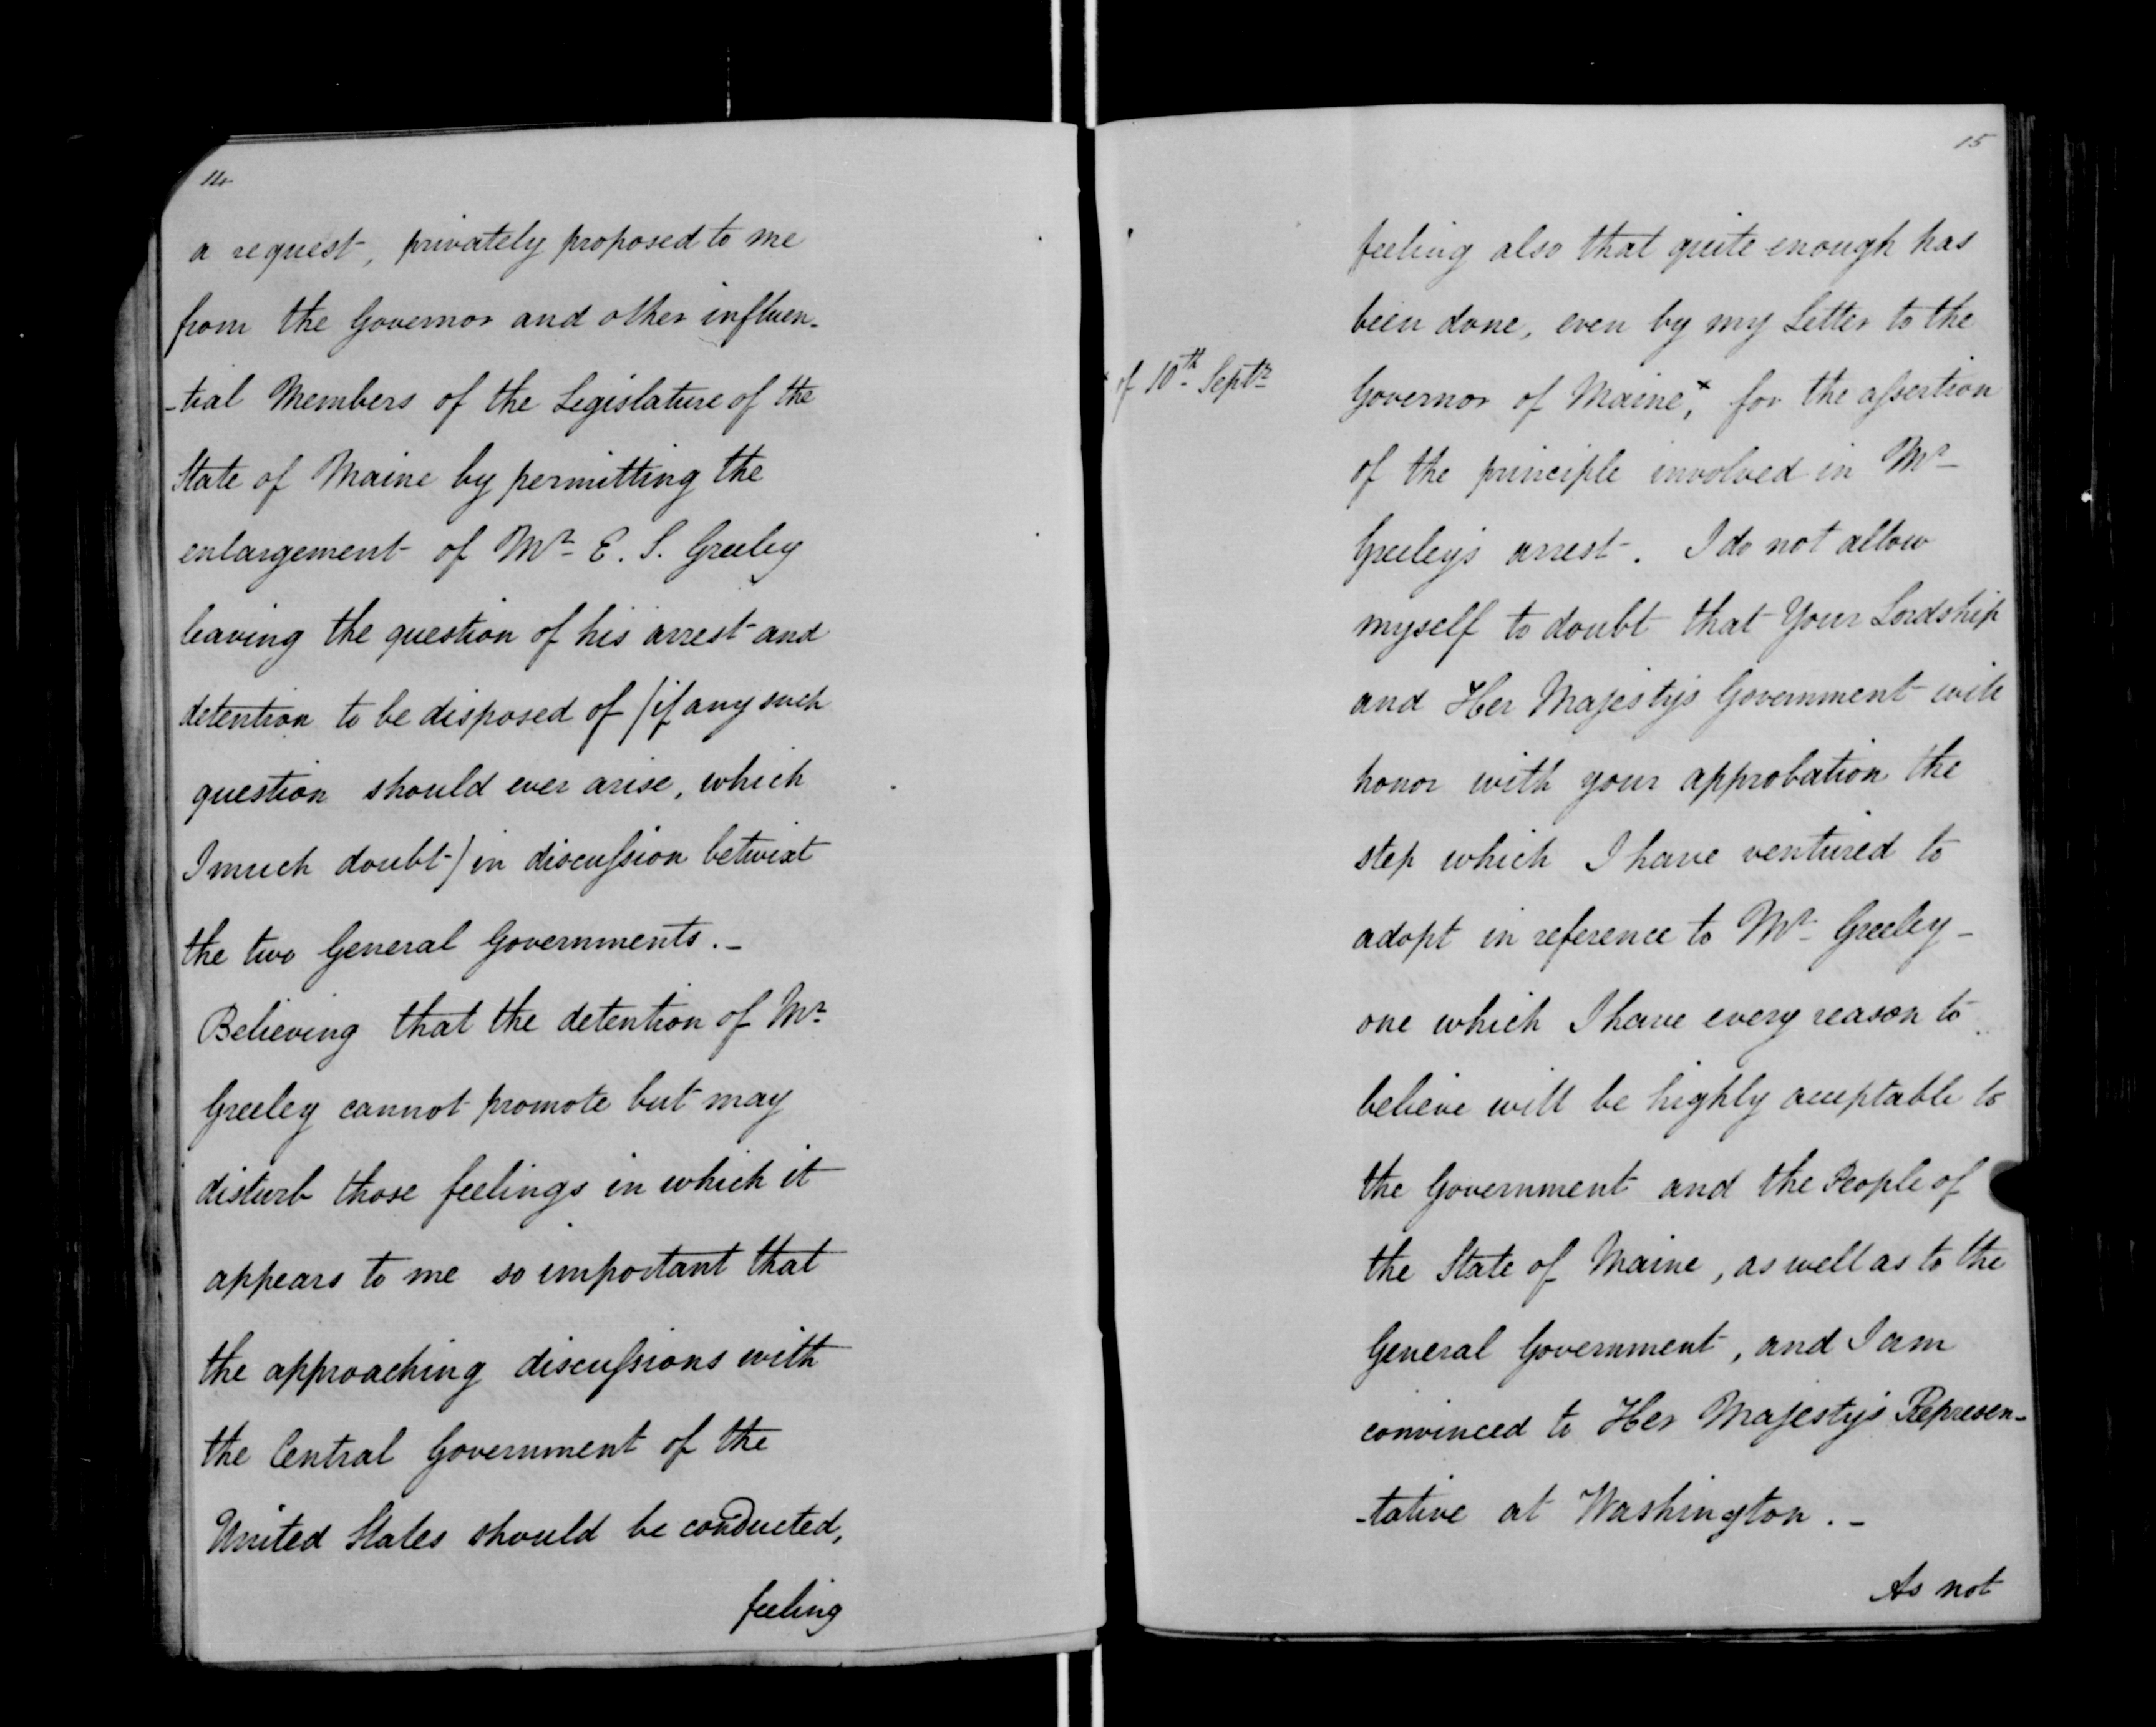 14
a request, privately proposed to me
from the Governor and other influen-
-tial Members of the Legislature of the
State of Maine by permitting the
enlargement of Mr. E. S. Greeley
leaving the question of his arrest and
detention to be disposed of (if any such
question should ever arise, which
I much doubt) in discussion betwixt
the two General Governments. -
Believing that the detention of Mr.
Greeley cannot promote but may
disturb those feelings in which it
appears to me so important that
the approaching discussions with
the Central Government of the
United States should be conducted,
feeling
15
feeling also that quite enough has
been done, even by my Letter to the
x of 10th Septr
Governor of Maine,x for the assertion
of the principle involved in Mr
Greeley's arrest. I do not allow
myself to doubt that Your Lordship
and Her Majesty's Government will
honor with your approbation the
step which I have ventured to
adopt in reference to Mr Greeley -
one which I have every reason to
believe will be highly acceptable to
the Government and the People of
the State of Maine, as well as to the
General Government, and I am
convinced to Her Majesty's Represen-
-tative at Washington. -
As not